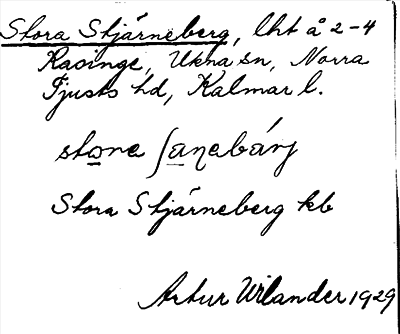 Stora Stjärneberg, lht å 2-4
Rasinge, Ukna sn, Norra
Tjusts hd, Kalmar l.
Stora Stjärneberg kb
Artur Wilander 1929